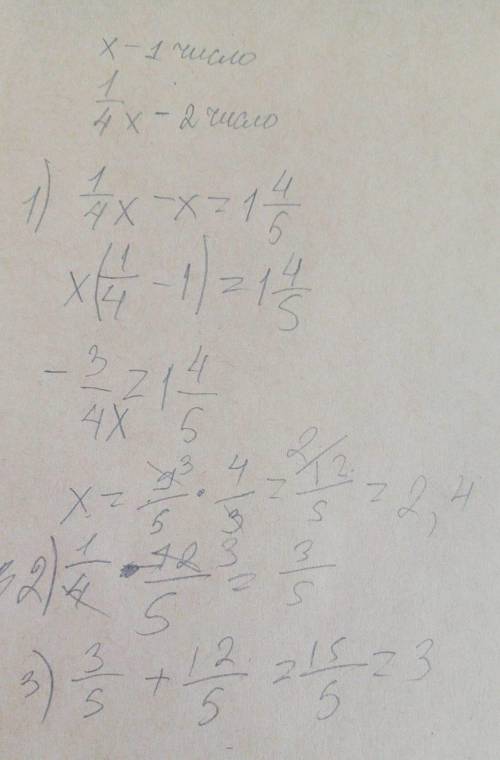 x - 1 число
1/4 x - 2 число
1) 1/4 x - x = 1 4/5
x(1/4 - 1) = 1 4/5
- 3/4x = 1 4/5
x = 9 3/5 · 4/3 = 12/5 = 2,4
2) 1/4 · 12/5 3 = 3/5
3) 3/5 + 12/5 = 15/5 = 3